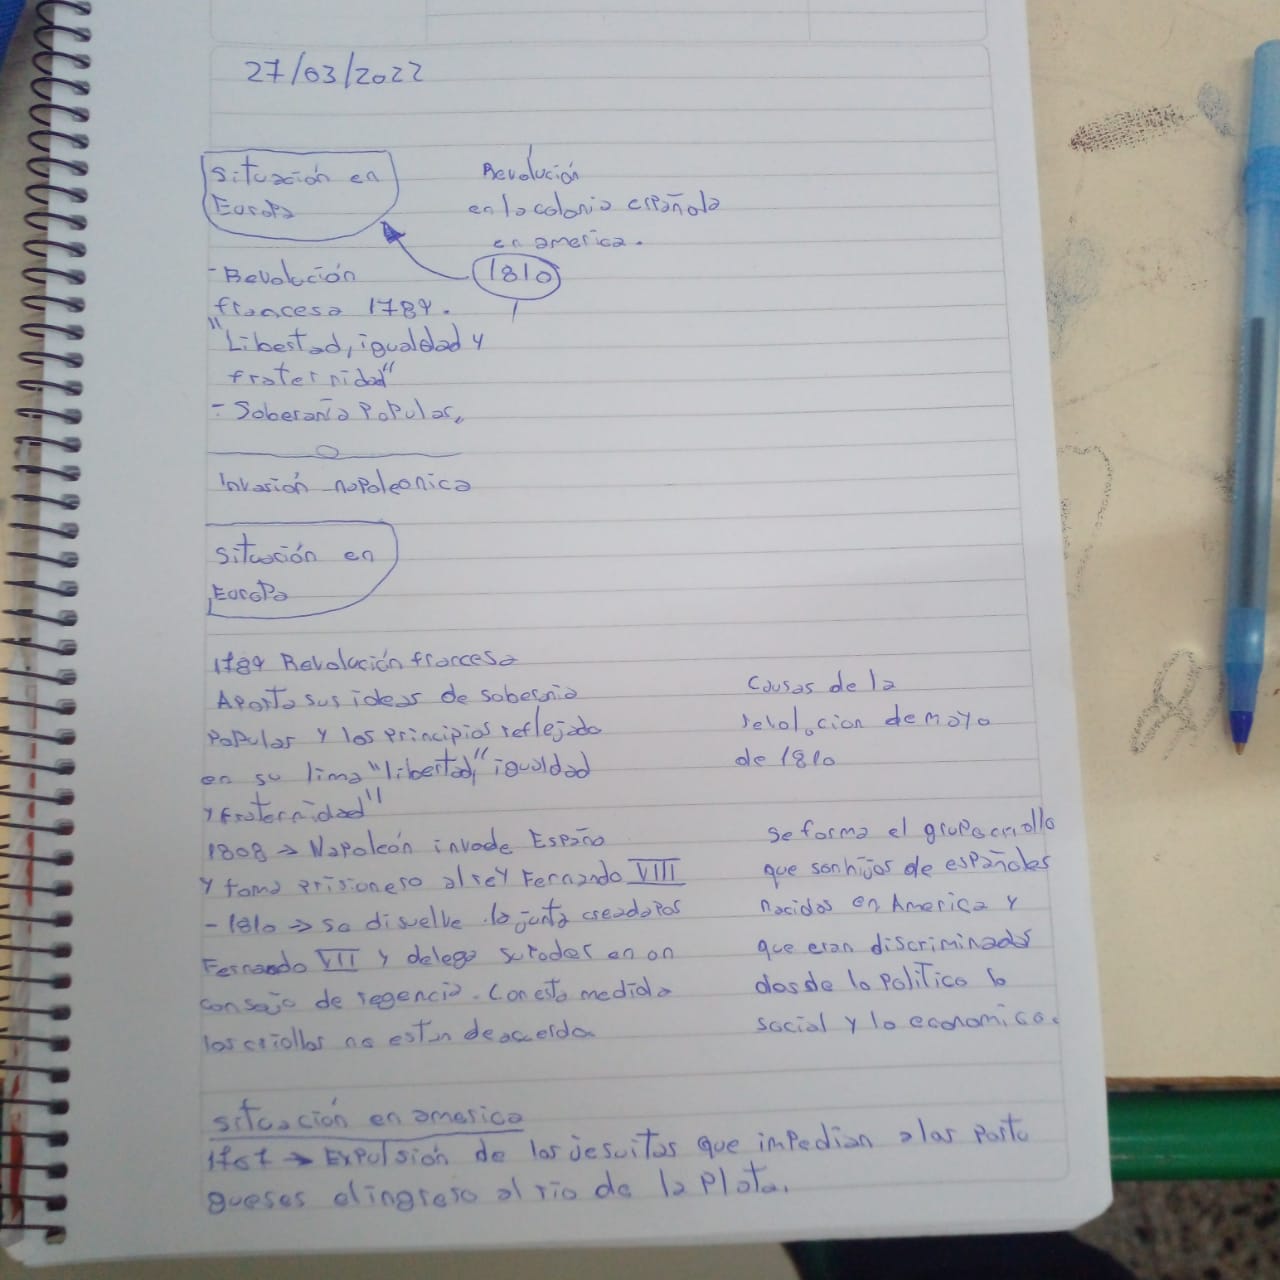 27/03/2022
Situación en
Europa
Revolución
en la colonia española
en america.
1810
- Revolución
francesa 1789.
"Libertad, igualdad y
fraternidad"
- Soberanía Popular.
Invasión napoleonica
Situación en
Europa
1789 Revolución francesa
Aporta sus ideas de sobernia
Popular y los principios reflejado
en su lima "libertad," igualdad
y Fraternidad"
1808 → Napoleón invade España
Y toma prisionero al rey Fernando VIII
- 1810 → se disuelve la junta creada por
Fernando VII y delega su poder en un
consejo de regencia. Con esta medida
los criollos no estan de acuerdo
Causas de la
revolucion de mayo
de 1810
se forma el grupo criollo
que son hijos de españoles
nacidos en America y
que eran discriminados
desde lo Politico lo
social y lo economico.
situación en america
1767 → Expulsión de los jesuitas que impedian a los portu
gueses el ingreso al río de la Plata.